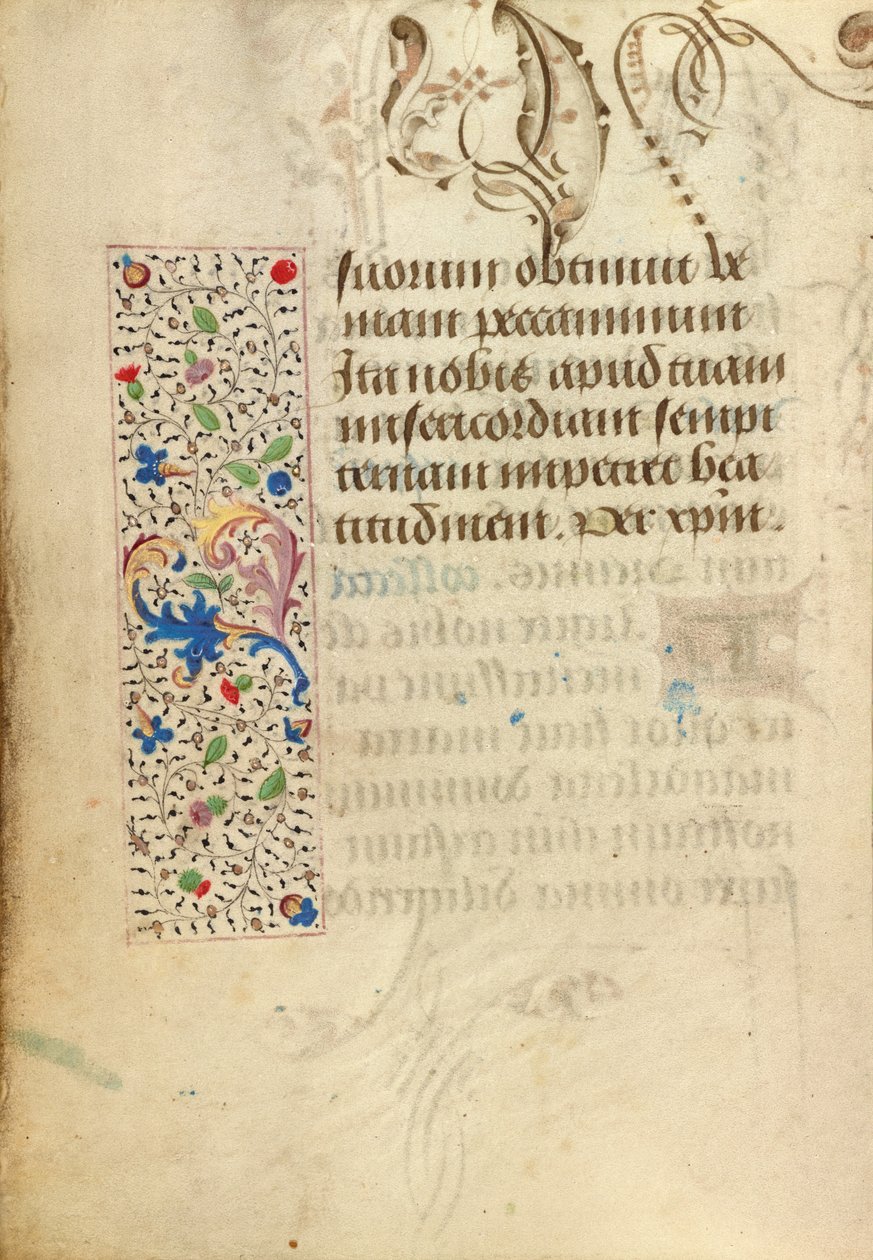 suorum obtinuit ve
niam peccaminum
Ita nobis apud tuam
misericordiam sempi
ternam impetret bea
titudinem. Per xpm̄.